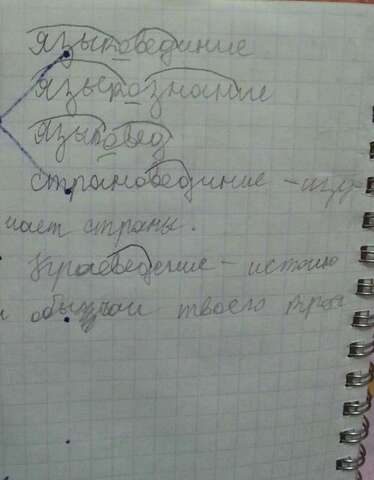 языковединие
языкознание
языковед
страновединие – изу-
чает страны.
Краеведение – истоию
и обычаи твоего края